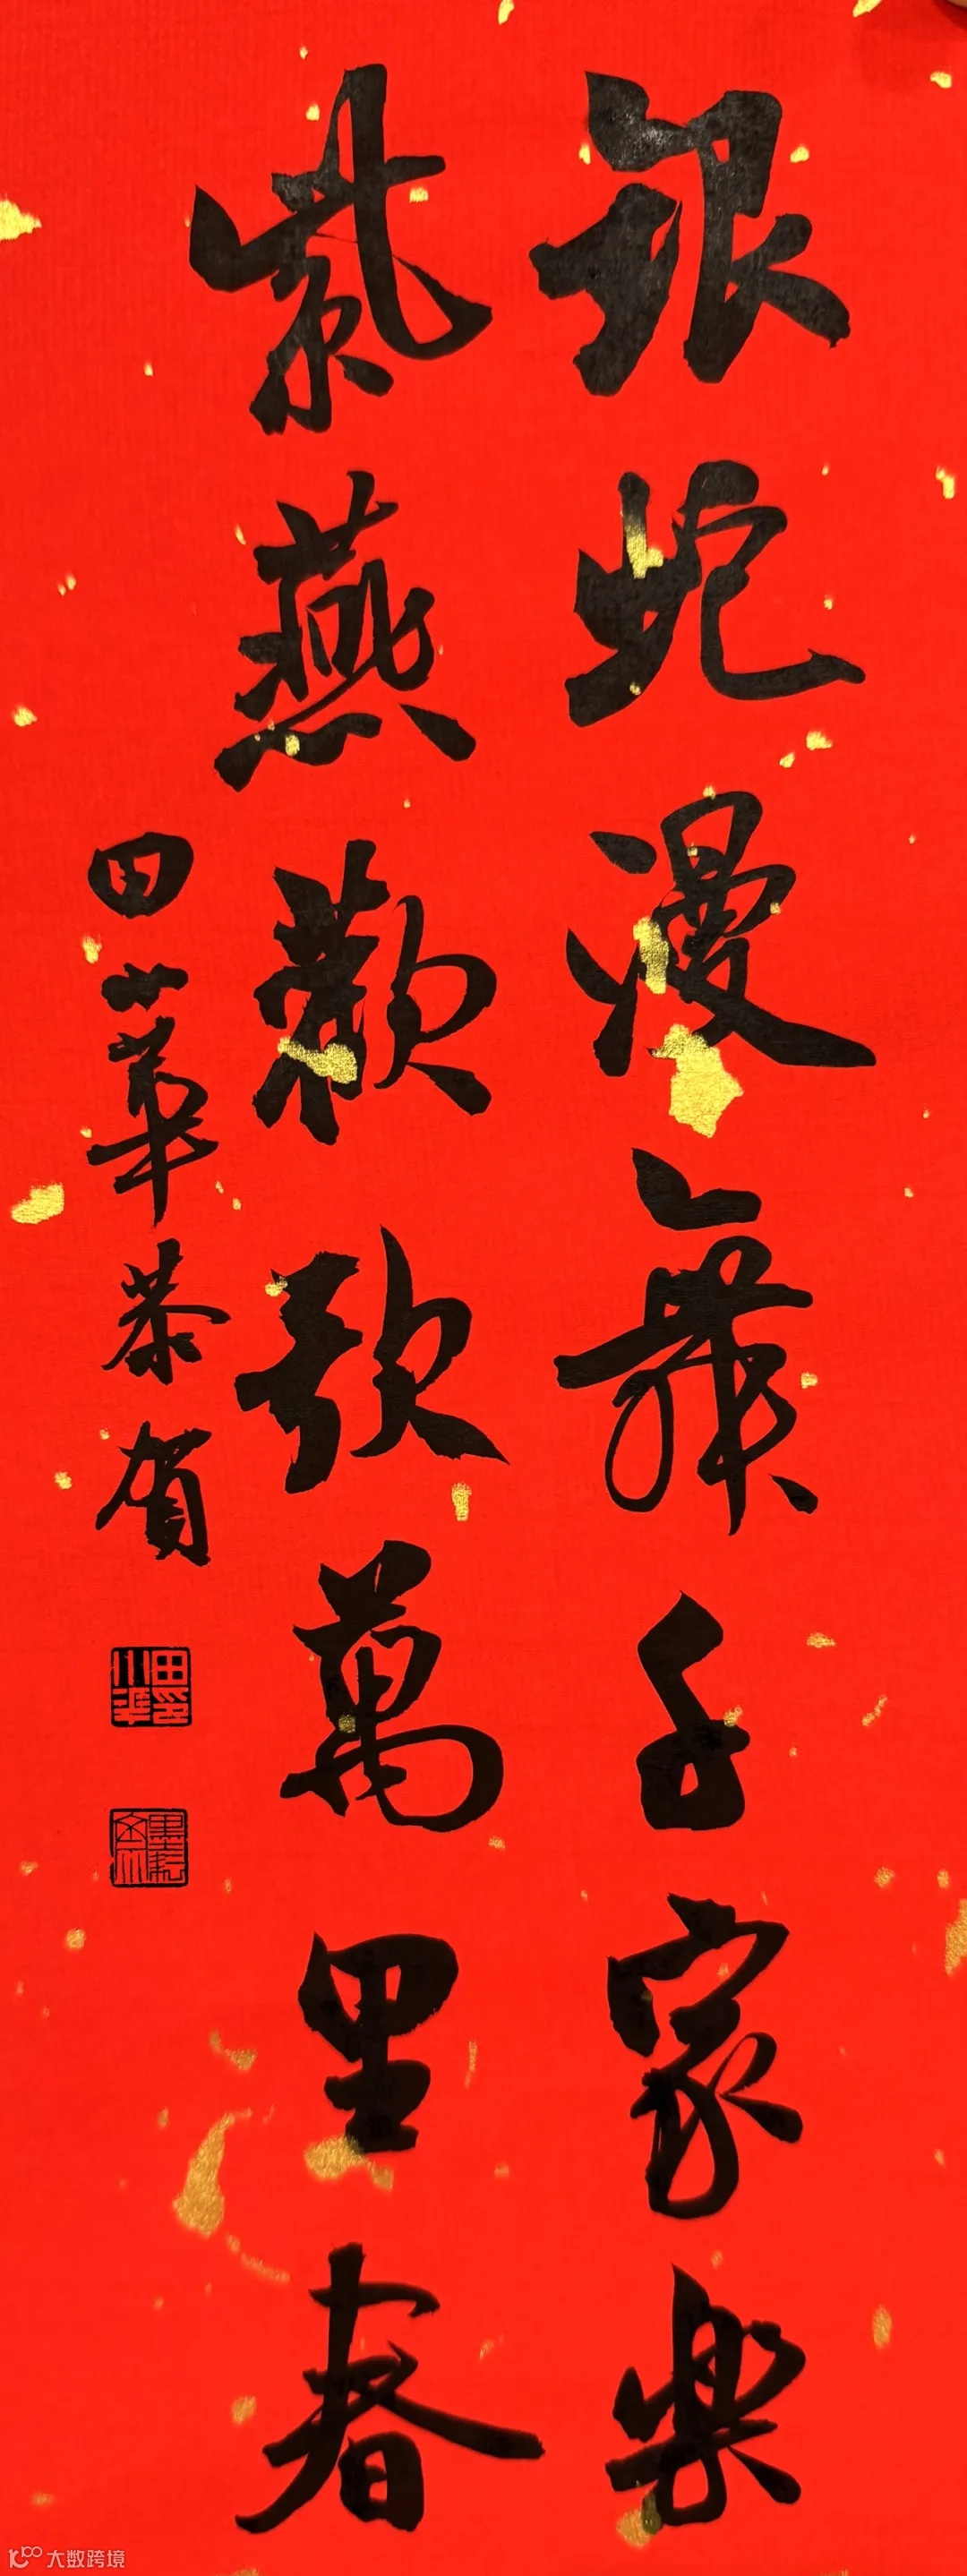 银蛇漫舞千家樂
紫燕歡歌萬里春
田小華恭賀
田小華印
大数跨境